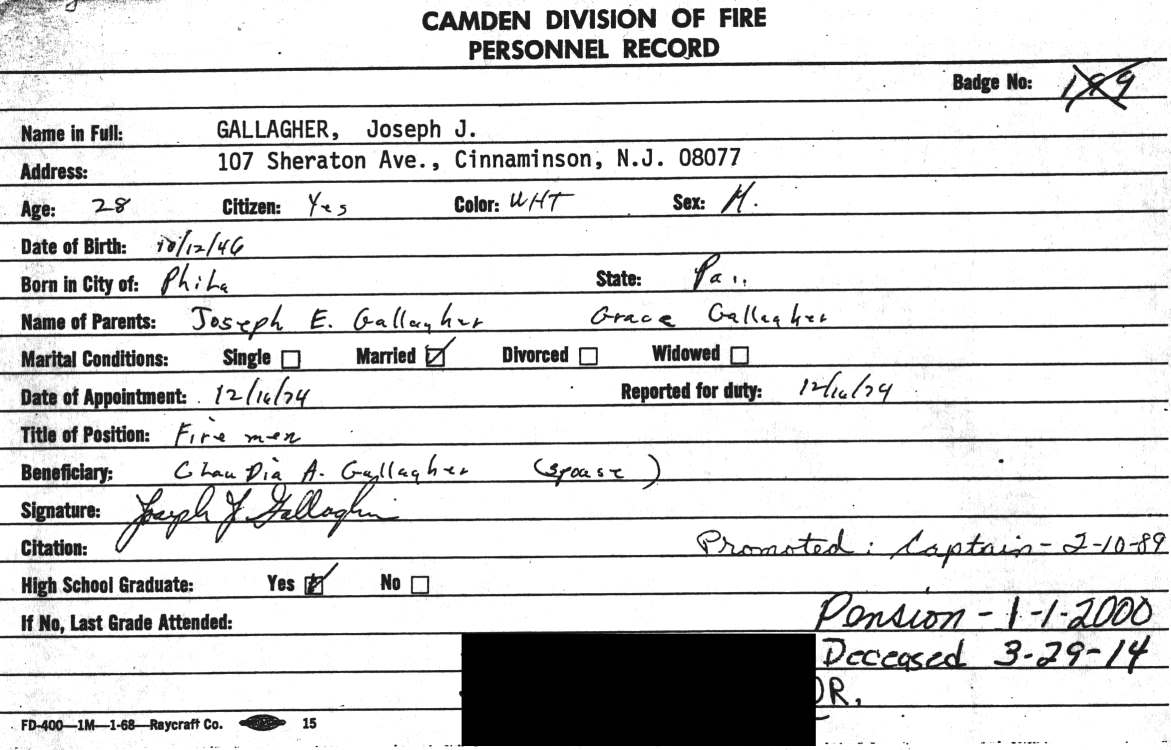 CAMDEN DIVISION OF FIRE
PERSONNEL RECORD
Badge No: 199
Name in Full: GALLAGHER, Joseph J.
Address: 107 Sheraton Ave., Cinnaminson, N.J. 08077
Age: 28 Citizen: Yes Color: WHT Sex: M.
Date of Birth: 10/12/46
Born in City of: Phila State: Pa.
Name of Parents: Joseph E. Gallagher Grace Gallagher
Marital Conditions: Single ☐ Married ☑ Divorced ☐ Widowed ☐
Date of Appointment: 12/16/74 Reported for duty: 12/16/74
Title of Position: Fire men
Beneficiary: Claudia A. Gallagher (spouse)
Signature: Joseph J Gallagher
Citation: Promoted: Captain - 2-10-89
High School Graduate: Yes ☑ No ☐
If No, Last Grade Attended: Pension - 1-1-2000
Deceased 3-29-14
DR.
FD-400—1M—1-68—Raycraft Co. 15